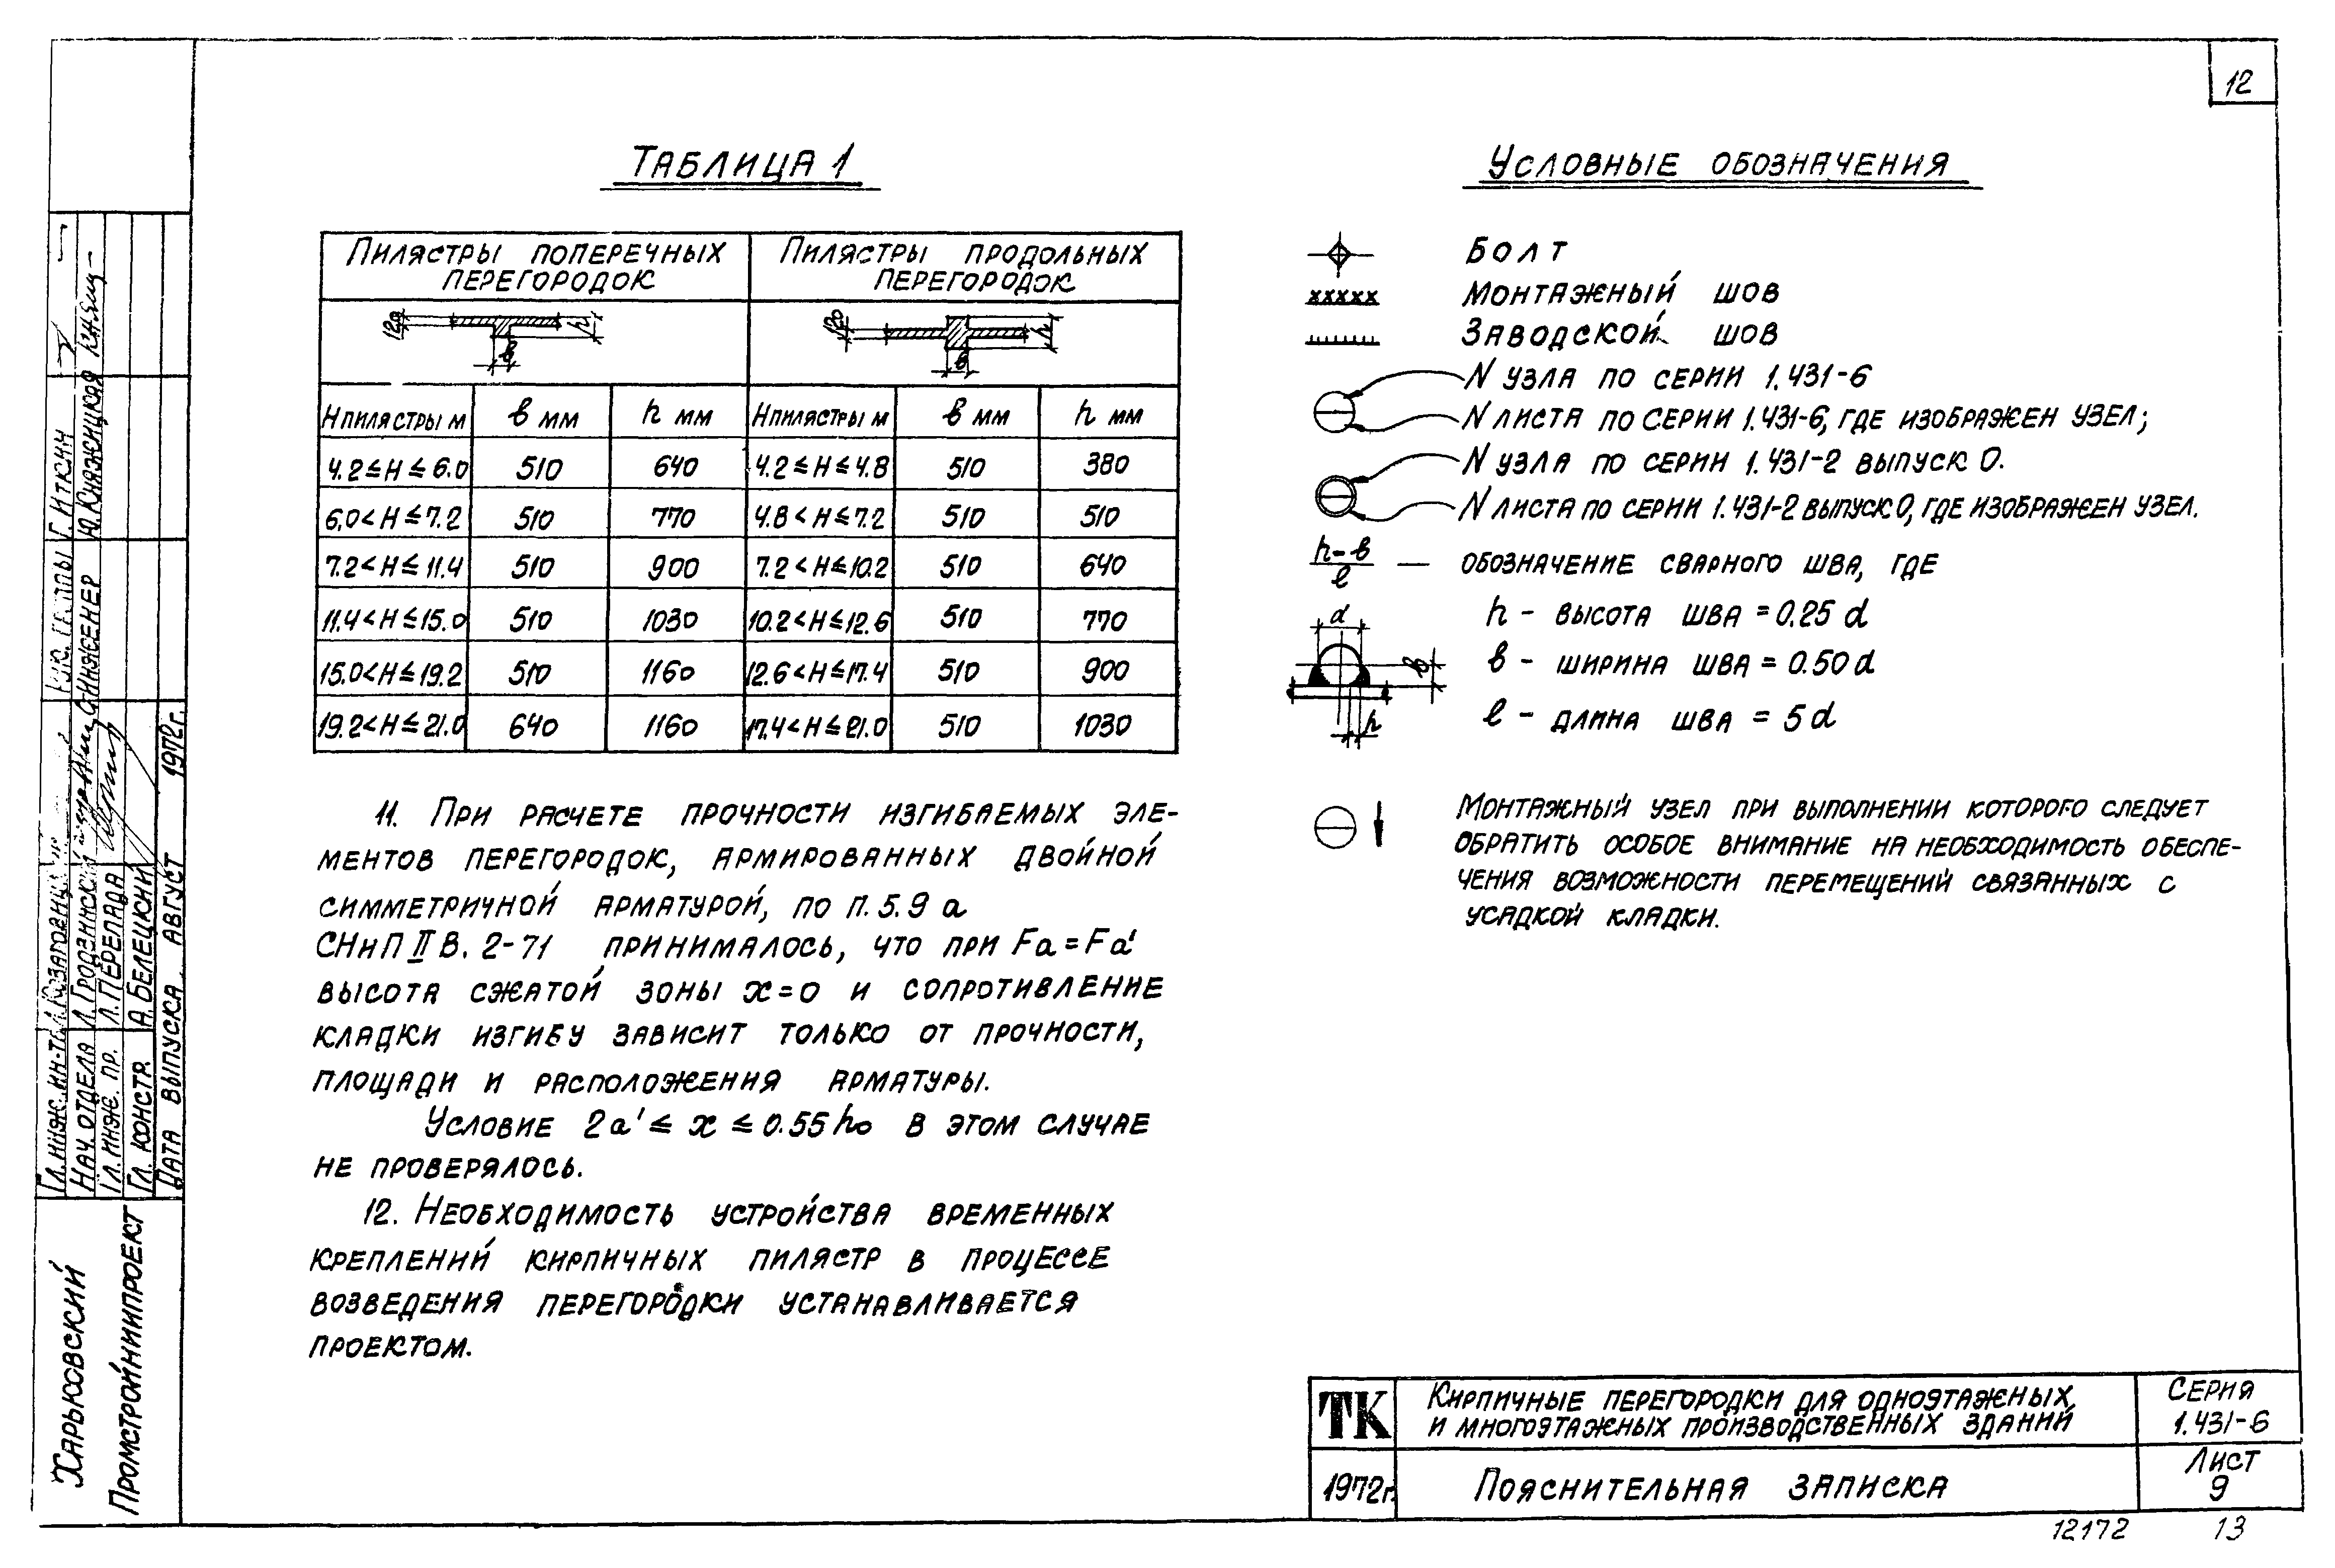 12
Таблица 1
Пилястры поперечных перегородок | Пилястры продольных перегородок
120 h в | 120 h в
Нпилястры м | в мм | h мм | Нпилястры м | в мм | h мм
4.2≤Н≤6.0 | 510 | 640 | 4.2≤Н≤4.8 | 510 | 380
6.0<Н≤7.2 | 510 | 770 | 4.8<Н≤7.2 | 510 | 510
7.2<Н≤11.4 | 510 | 900 | 7.2<Н≤10.2 | 510 | 640
11.4<Н≤15.0 | 510 | 1030 | 10.2<Н≤12.6 | 510 | 770
15.0<Н≤19.2 | 510 | 1160 | 12.6<Н≤17.4 | 510 | 900
19.2<Н≤21.0 | 640 | 1160 | 17.4<Н≤21.0 | 510 | 1030
11. При расчете прочности изгибаемых эле-
ментов перегородок, армированных двойной
симметричной арматурой, по п. 5.9 а
СНиП II В. 2-71 принималось, что при Fa = Fa'
высота сжатой зоны x=0 и сопротивление
кладки изгибу зависит только от прочности,
площади и расположения арматуры.
Условие 2a' ≤ x ≤ 0.55ho в этом случае
не проверялось.
12. Необходимость устройства временных
креплений кирпичных пилястр в процессе
возведения перегородки устанавливается
проектом.
Условные обозначения
Болт
Монтажный шов
Заводской шов
N узла по серии 1.431-6
N листа по серии 1.431-6, где изображен узел;
N узла по серии 1.431-2 выпуск 0.
N листа по серии 1.431-2 выпуск 0, где изображен узел.
h-в
l
— обозначение сварного шва, где
h - высота шва = 0.25 d
в - ширина шва = 0.50 d
l - длина шва = 5 d
d
в
h
Монтажный узел при выполнении которого следует
обратить особое внимание на необходимость обеспе-
чения возможности перемещений связанных с
усадкой кладки.
ТК
Кирпичные перегородки для одноэтажных
и многоэтажных производственных зданий
Серия
1.431-6
1972г.
Пояснительная записка
Лист
9
12172 13
Харьковский
Промстройниипроект
Гл. инж. ин-та
Нач. отдела Л. Гродзинский
Гл. инж. пр. Л. Перелада
Гл. констр. А. Белецкий
Дата выпуска август 1972г.
Рук. группы Г. Иткин
Ст. инженер Ю. Княжицкая